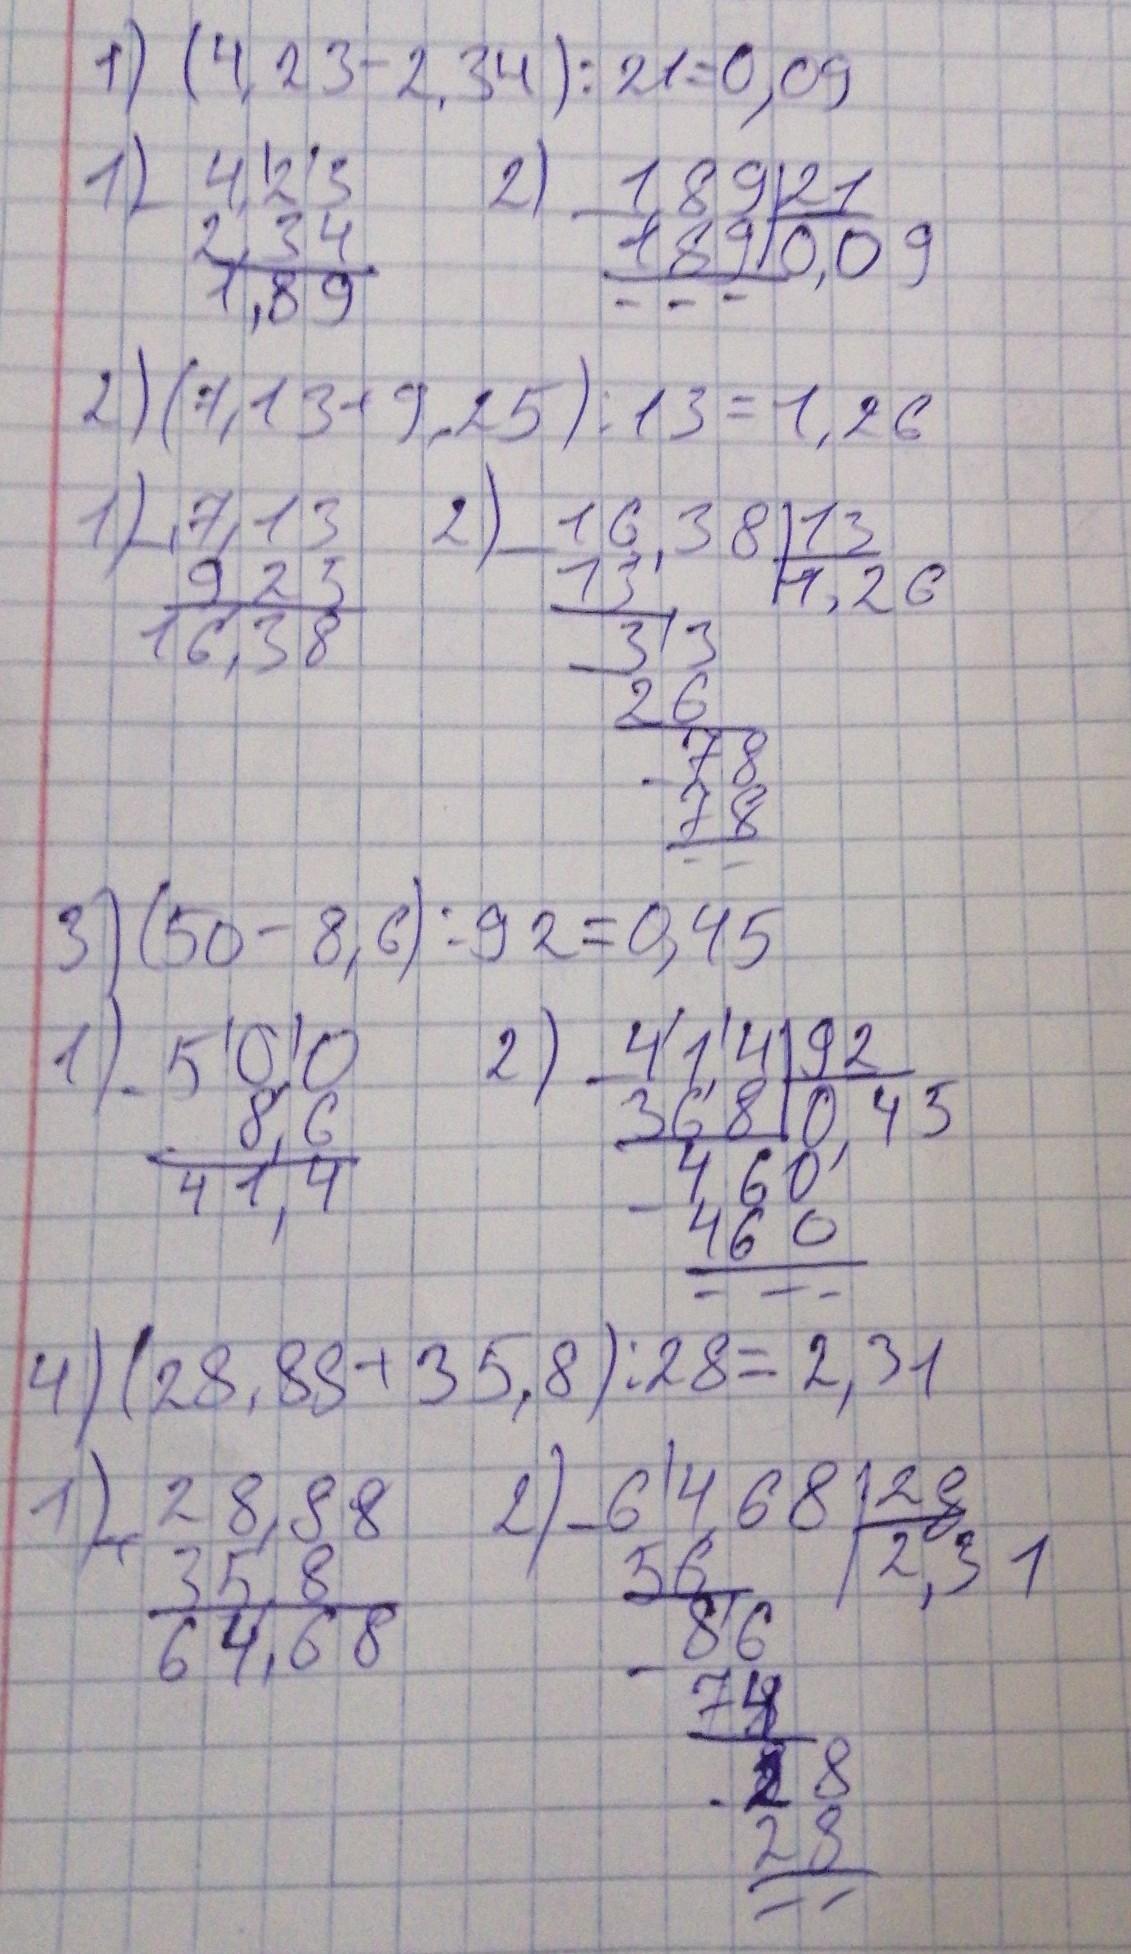 1) (4,23-2,34):21=0,09
1) 4,23 2) 1,89 21
2,34 189 0,09
1,89 ---
2) (7,13+9,25):13=1,26
1) 7,13 2) 16,38 13
9 23 13 1,26
16,38 33
26
78
78
--
3) (50-8,6):92=0,45
1) 50,0 2) 41,4 92
8,6 368 0,45
41,4 460
460
---
4) (28,88+35,8):28=2,31
1) 28,88 2) 64,68 28
35,8 56 2,31
64,68 86
28
28
--